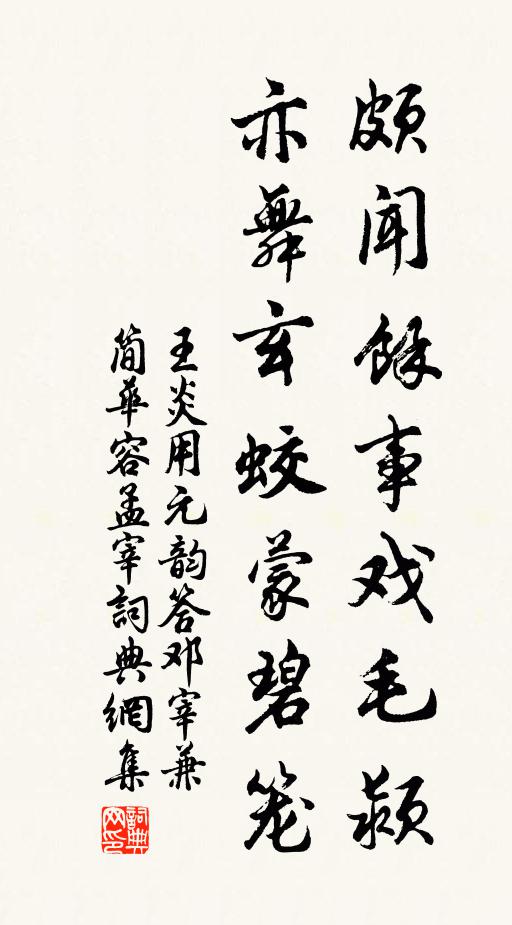 頗闻餘事戏毛颖
亦舞玄蛟蒙碧笼
王炎用元韵答邓宰兼
简華容孟宰詞典網集
詞典网印